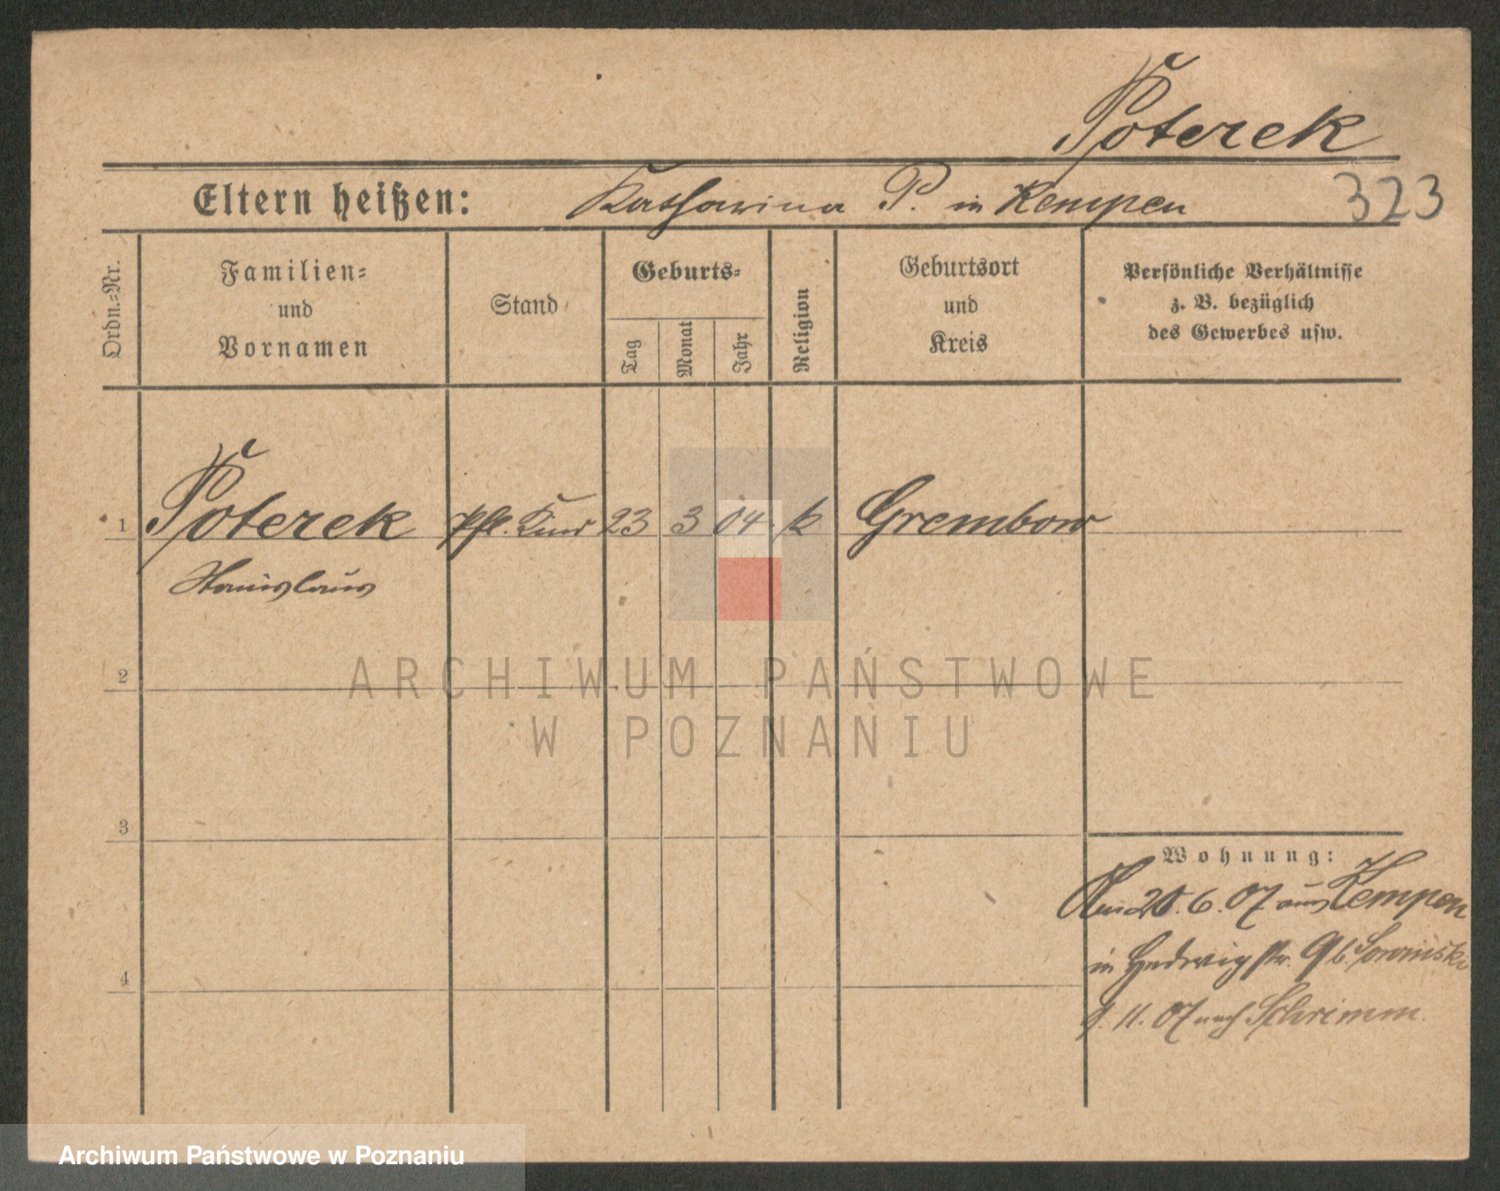 Poterek
Eltern heißen: Katharina P. in Kempen 323
Ordn.-Nr.
Familien-
und
Vornamen
Stand
Geburts-
Tag
Monat
Jahr
Religion
Geburtsort
und
Kreis
Persönliche Verhältnisse
z. B. bezüglich
des Gewerbes usw.
1 Poterek Pfl. Kind 23 3 04 k Grembow
Stanislaus
2
ARCHIWUM PAŃSTWOWE
W POZNANIU
3
Wohnung:
20.6.07 aus Kempen
in Hedwigstr. 9 b.
1.11.07 nach Schrimm.
4
Archiwum Państwowe w Poznaniu